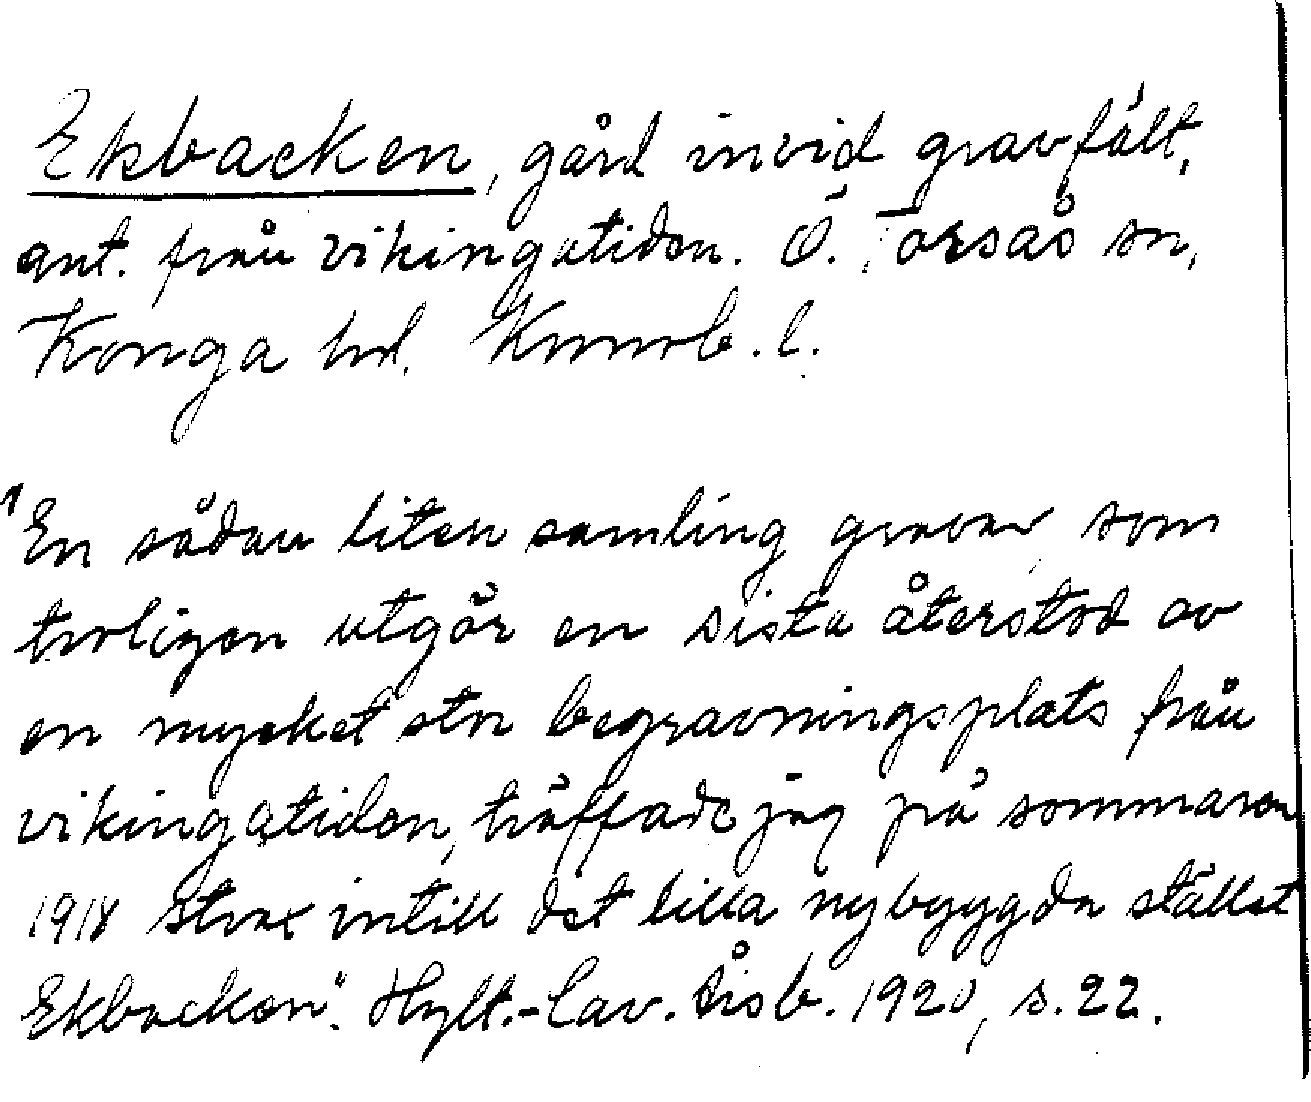 Ekbacken, gård invid gravfält,
ant. från vikingatiden. Ö. Torsås sn,
Konga hd. Kronob. l.
"En sådan liten samling gravar, som
troligen utgör en sista återstod av
en mycket stor begravningsplats från
vikingatiden, träffade jag på sommaren
1918 strax intill det lilla nybyggda stället
Ekbacken". Hylt.-Cav. årsb. 1920, s. 22.